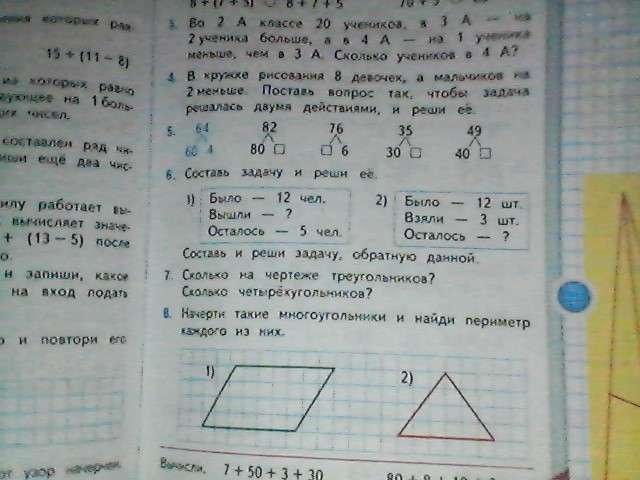 15 + (11 - 8)
из которых равно
составлен ряд чи-
иши ещё два чис-
илу работает вы-
вычисляет значе-
+ (13 - 5) после
и запиши, какое
на вход подать
и повтори его
узор начерчен.
8 + 7 + 5
3. Во 2 А классе 20 учеников, в 3 А — на
2 ученика больше, а в 4 А — на 1 ученика
меньше, чем в 3 А. Сколько учеников в 4 А?
4. В кружке рисования 8 девочек, а мальчиков на
2 меньше. Поставь вопрос так, чтобы задача
решалась двумя действиями, и реши её.
5. 64 82 76 35 49
60 4 80 □ □ 6 30 □ 40 □
6. Составь задачу и реши её.
1) Было — 12 чел.
Вышли — ?
Осталось — 5 чел.
2) Было — 12 шт.
Взяли — 3 шт.
Осталось — ?
Составь и реши задачу, обратную данной.
7. Сколько на чертеже треугольников?
Сколько четырёхугольников?
8. Начерти такие многоугольники и найди периметр
каждого из них.
1) 2)
Вычисли. 7 + 50 + 3 + 30